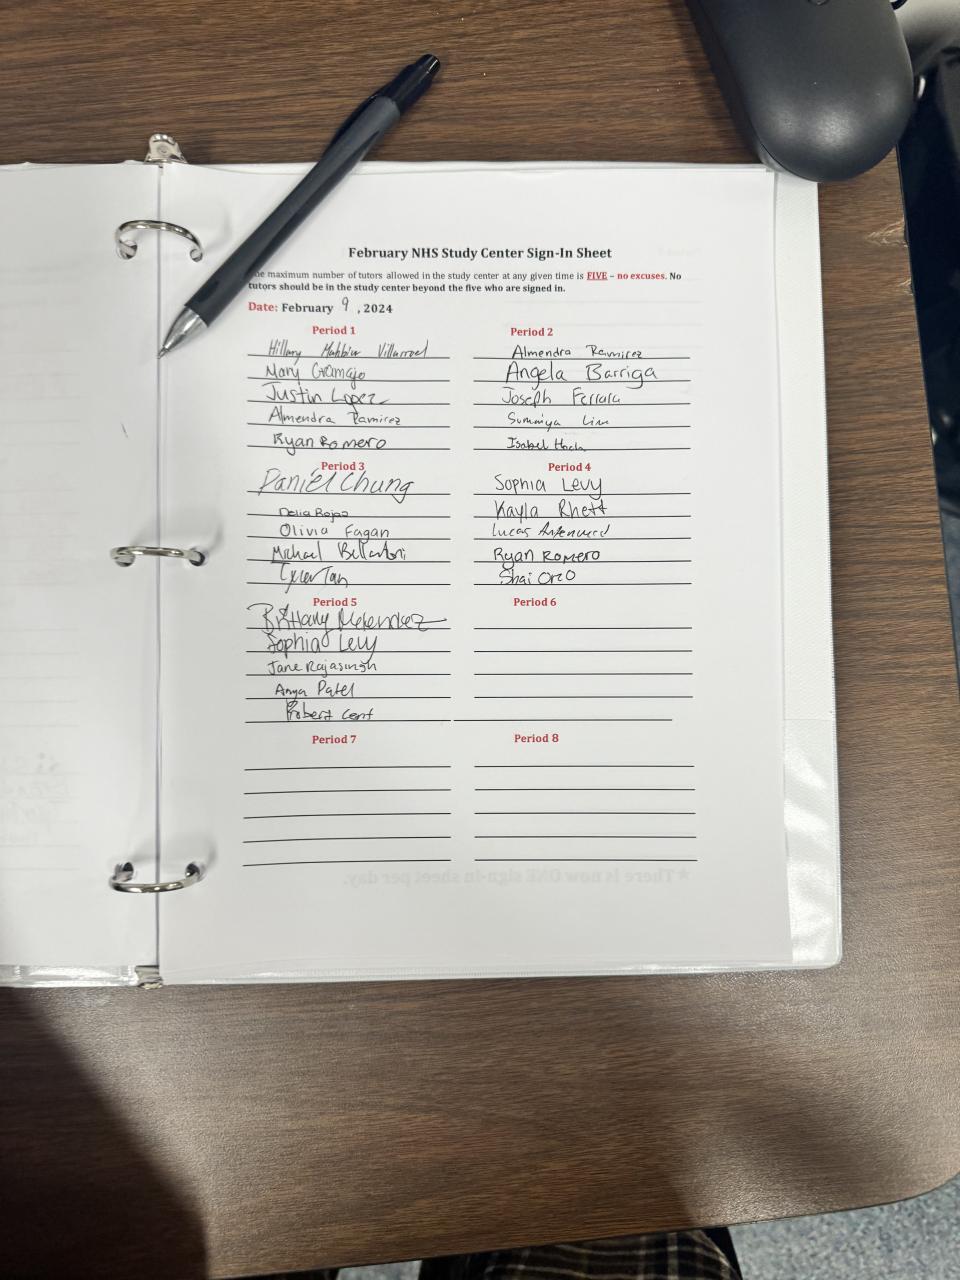 February NHS Study Center Sign-In Sheet
maximum number of tutors allowed in the study center at any given time is FIVE – no excuses. No
tutors should be in the study center beyond the five who are signed in.
Date: February 9, 2024
Period 1
Hillary Villarroel
Mary Gramajo
Justin Lopez
Almendra Ramirez
Ryan Romero
Period 2
Almendra Ramirez
Angela Barriga
Joseph Ferrara
Sumaiya Lim
Isabel
Period 3
Daniel Chung
Delia Rojas
Olivia Fagan
Michael Bellantoni
Tyler Tan
Period 4
Sophia Levy
Kayla Rhett
Lucas
Ryan Romero
Shai Oro
Period 5
Brittany Melendez
Sophia Levy
Jane Rajasingh
Anya Patel
Robert Cent
Period 6
Period 7
Period 8
★There is now ONE sign-in sheet per day.